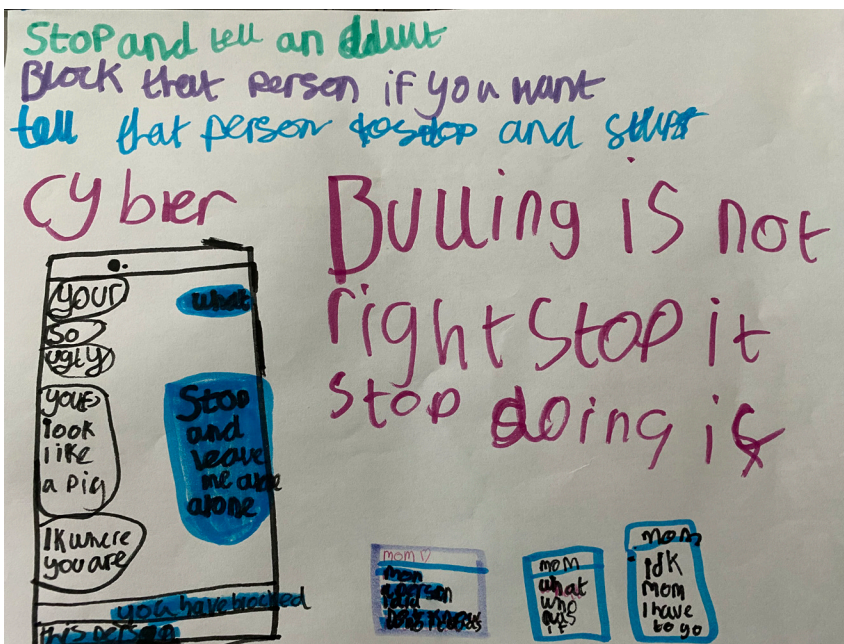 Stop and tell an adult
Block that person if you want
tell that person to stop and
Cybier
Bulling is not
right Stop it
stop doing it
your
so
ugly
what
your
look
like
a pig
Stop
and
leave
me
alone
IK where
you are
you have blocked
this person
mom ♡
mom
a person
mom
what
who
is
mom
idk
mom
I have
to go